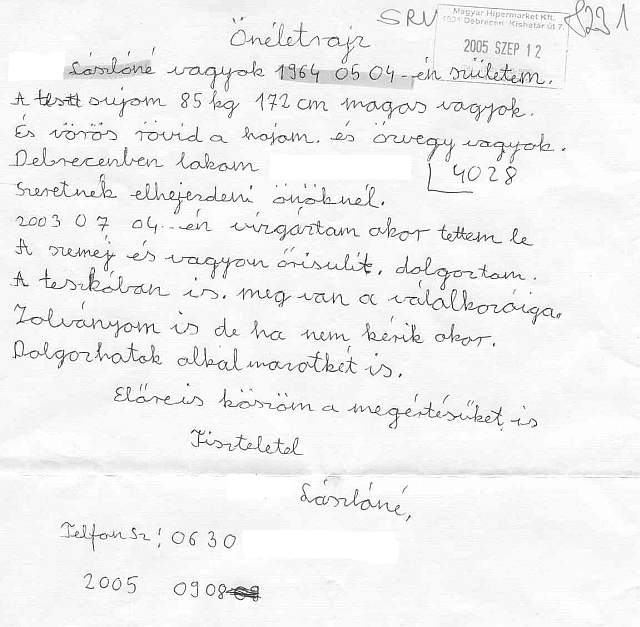 SRU
Magyar Hipermarket Kft.
4031 Debrecen, Kishatár út 7.
2005 SZEP 12
Önéletrajz
Lászlóné vagyok 1964 05 04-én születem.
A testt sujom 85 kg 172 cm magas vagyok.
És vörös rövid a hajam. és özvegy vagyok.
Debrecenben lakom
4028
Szeretnék elhejezdeni önöknél.
2003 07 04-én vizgáztam akor tettem le
A szeméj és vagyon örisulit. dolgoztam.
A teszkóban is. meg van a válalkozóiga.
Zolványom is de ha nem kérik akor.
Dolgozhatok alkalmazotként is.
Előreis köszöm a megértésüket is
Tiszteletel
Lászlóné,
Telfon sz: 0630
2005 0908